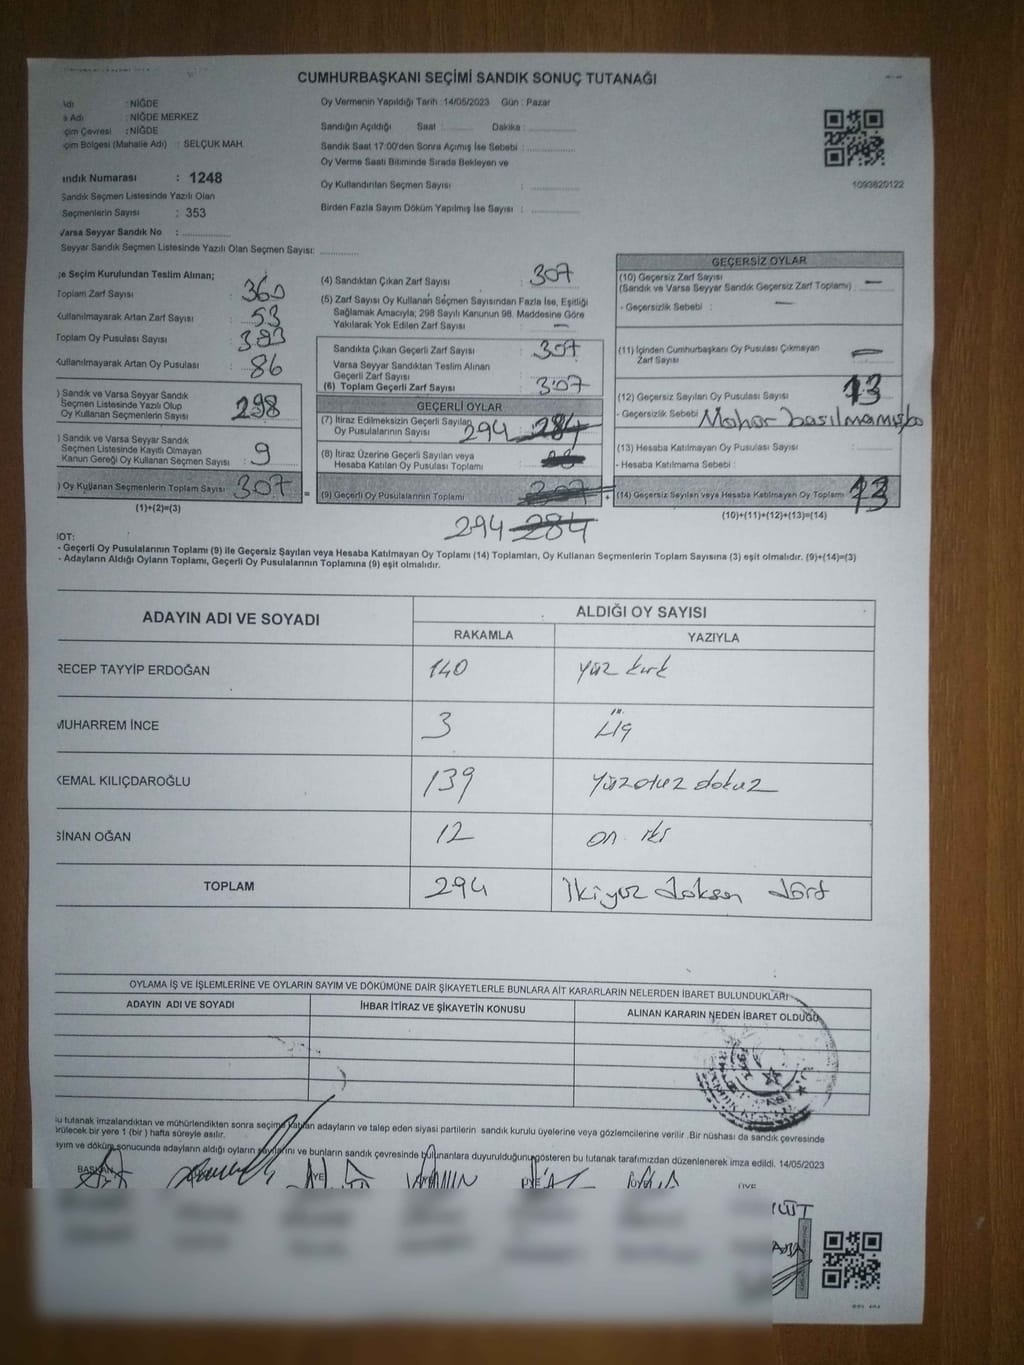 CUMHURBAŞKANI SEÇİMİ SANDIK SONUÇ TUTANAĞI
: NİĞDE
Adı : NİĞDE MERKEZ
Çevresi : NİĞDE
Bölgesi (Mahalle Adı) : SELÇUK MAH.
Numarası : 1248
Sandık Seçmen Listesinde Yazılı Olan
Seçmenlerin Sayısı : 353
Varsa Seyyar Sandık No : ..............
Seyyar Sandık Seçmen Listesinde Yazılı Olan Seçmen Sayısı: ..............
Oy Vermenin Yapıldığı Tarih : 14/05/2023 Gün : Pazar
Sandığın Açıldığı Saat : .......... Dakika : ..............
Sandık Saat 17:00'den Sonra Açımış İse Sebebi : ..............
Oy Verme Saati Bitiminde Sırada Bekleyen ve
Oy Kullandırılan Seçmen Sayısı : ..............
Birden Fazla Sayım Döküm Yapılmış İse Sayısı : ..............
1093820122
Seçim Kurulundan Teslim Alınan;
Toplam Zarf Sayısı : 360
Kullanılmayarak Artan Zarf Sayısı : 53
Toplam Oy Pusulası Sayısı : 393
Kullanılmayarak Artan Oy Pusulası : 86
) Sandık ve Varsa Seyyar Sandık
Seçmen Listesinde Yazılı Olup
Oy Kullanan Seçmenlerin Sayısı : 298
) Sandık ve Varsa Seyyar Sandık
Seçmen Listesinde Kayıtlı Olmayan
Kanun Gereği Oy Kullanan Seçmen Sayısı : 9
) Oy Kullanan Seçmenlerin Toplam Sayısı : 307
(1)+(2)=(3)
(4) Sandıktan Çıkan Zarf Sayısı : 307
(5) Zarf Sayısı Oy Kullanan Seçmen Sayısından Fazla İse, Eşitliği
Sağlamak Amacıyla; 298 Sayılı Kanunun 98. Maddesine Göre
Yakılarak Yok Edilen Zarf Sayısı : —
Sandıkta Çıkan Geçerli Zarf Sayısı : 307
Varsa Seyyar Sandıktan Teslim Alınan
Geçerli Zarf Sayısı :
(6) Toplam Geçerli Zarf Sayısı : 307
GEÇERLİ OYLAR
(7) İtiraz Edilmeksizin Geçerli Sayılan
Oy Pusulalarının Sayısı 294 284
(8) İtiraz Üzerine Geçerli Sayılan veya
Hesaba Katılan Oy Pusulası Toplamı
= (9) Geçerli Oy Pusulalarının Toplamı 307 +
294 284
GEÇERSİZ OYLAR
(10) Geçersiz Zarf Sayısı
(Sandık ve Varsa Seyyar Sandık Geçersiz Zarf Toplamı) : —
- Geçersizlik Sebebi : —
(11) İçinden Cumhurbaşkanı Oy Pusulası Çıkmayan
Zarf Sayısı : —
(12) Geçersiz Sayılan Oy Pusulası Sayısı : 13
- Geçersizlik Sebebi : Mohor basılmamış
(13) Hesaba Katılmayan Oy Pusulası Sayısı :
- Hesaba Katılmama Sebebi :
(14) Geçersiz Sayılan veya Hesaba Katılmayan Oy Toplamı : 13
(10)+(11)+(12)+(13)=(14)
NOT:
- Geçerli Oy Pusulalarının Toplamı (9) ile Geçersiz Sayılan veya Hesaba Katılmayan Oy Toplamı (14) Toplamları, Oy Kullanan Seçmenlerin Toplam Sayısına (3) eşit olmalıdır. (9)+(14)=(3)
- Adayların Aldığı Oyların Toplamı, Geçerli Oy Pusulalarının Toplamına (9) eşit olmalıdır.
ADAYIN ADI VE SOYADI ALDIĞI OY SAYISI
RAKAMLA YAZIYLA
RECEP TAYYİP ERDOĞAN 140 yüz kırk
MUHARREM İNCE 3 üç
KEMAL KILIÇDAROĞLU 139 yüzotuz dokuz
SİNAN OĞAN 12 on iki
TOPLAM 294 İkiyüz doksan dört
OYLAMA İŞ VE İŞLEMLERİNE VE OYLARIN SAYIM VE DÖKÜMÜNE DAİR ŞİKAYETLERLE BUNLARA AİT KARARLARIN NELERDEN İBARET BULUNDUKLARI
ADAYIN ADI VE SOYADI İHBAR İTİRAZ VE ŞİKAYETİN KONUSU ALINAN KARARIN NEDEN İBARET OLDUĞU
tutanak imzalandıktan ve mühürlendikten sonra seçime katılan adayların ve talep eden siyasi partilerin sandık kurulu üyelerine veya gözlemcilerine verilir .Bir nüshası da sandık çevresinde
görülecek bir yere 1 (bir ) hafta süreyle asılır.
Sayım ve döküm sonucunda adayların aldığı oyların sayılarını ve bunların sandık çevresinde bulunanlara duyurulduğunu gösteren bu tutanak tarafımızdan düzenlenerek imza edildi. 14/05/2023
BAŞKAN ÜYE ÜYE ÜYE